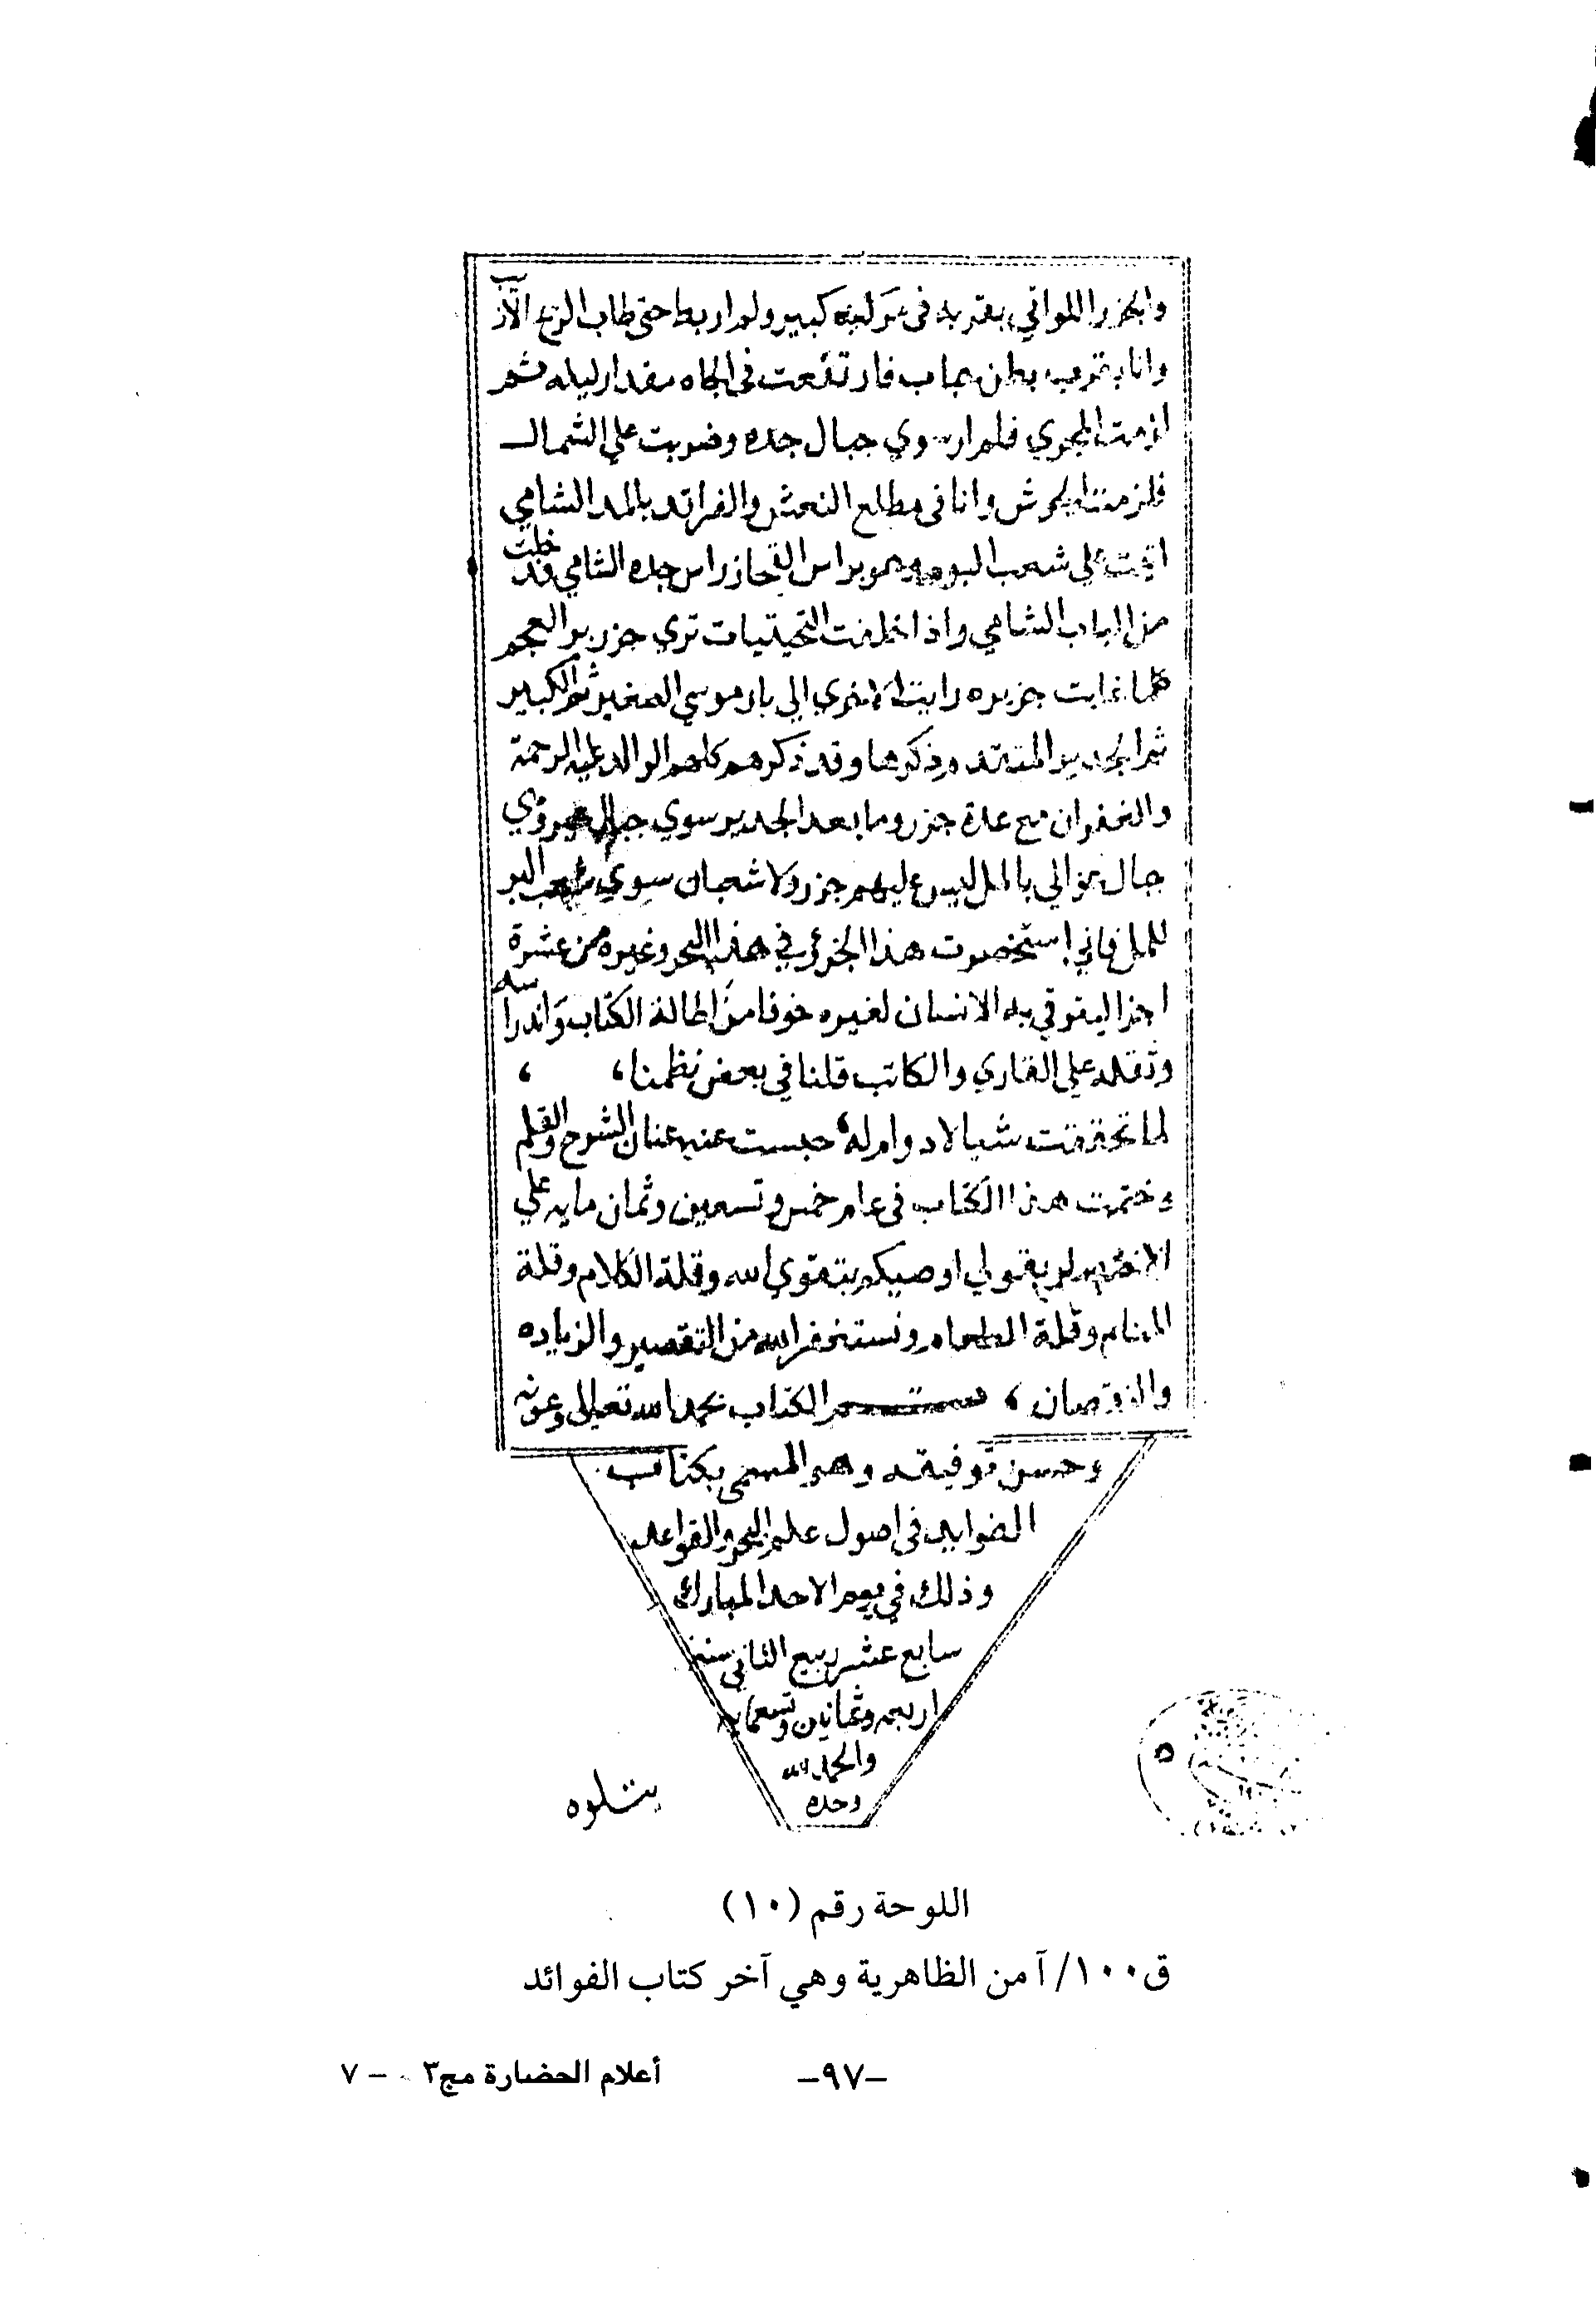 والجزر اللواتي بقربه في مركبه كبير ولم اربط حتى طاب الريح الازيب
وانا بقرب بطن جاب فارتفعت في الجاه مقدار ليله ثم
لزمت المجري فلم ار سوي جبال جده وضربت علي الشمال
فلزمتنا وانا في مطلع النعش والفراقد بالمد الشامي
علي شعب البوم براس جده الشامي قد خلت
من الباب الشامي واذا خلفت التحيتيات تري جزر بر العجم
كلما غابت جزيره رايت الاخري الي بار موسي الصغير ثم الكبير
ثم الجدير المتقدم ذكرها وقد ذكرهم كلهم الوالد عليه الرحمة
مع عدة جزر وما بعد الجدير سوي جبال
جال بالمل ليس عليهم جزر ولا شعبان سوي شعب البر
للمل فاني استخصرت هذا الجزؤ في هذا البحر وغيره من عشرة
اجزا ليقوي به الانسان لغيره خوفا من اطالة الكتاب واندراسه
وثقله علي القاري والكاتب قلنا في بعض نظمنا،
لما تحققت شيا لا دوام له، حبست عنه عنان الشرح والقلم
وختمت هذا الكتاب في عام خمس وتسعين وثمان مايه علي
بقولي اوصيكم بتقوي الله وقلة الكلام وقلة
المنام وقلة الطعام ونستغفر الله من التقصير والزياده
والنقصان، تم الكتاب بحمد الله تعالى وعونه
وحسن توفيقه وهو المسمى بكتاب
الفوايد في اصول علم البحر والقواعد
وذلك في يوم الاحد المبارك
سابع عشر ربيع الثاني سنة
اربعه وثمانين وتسعمايه
والحمد لله
وحده
يتلوه
اللوحة رقم (١٠)
ق١٠٠/آ من الظاهرية وهي آخر كتاب الفوائد
-٩٧-
أعلام الحضارة مج٣ - ٧